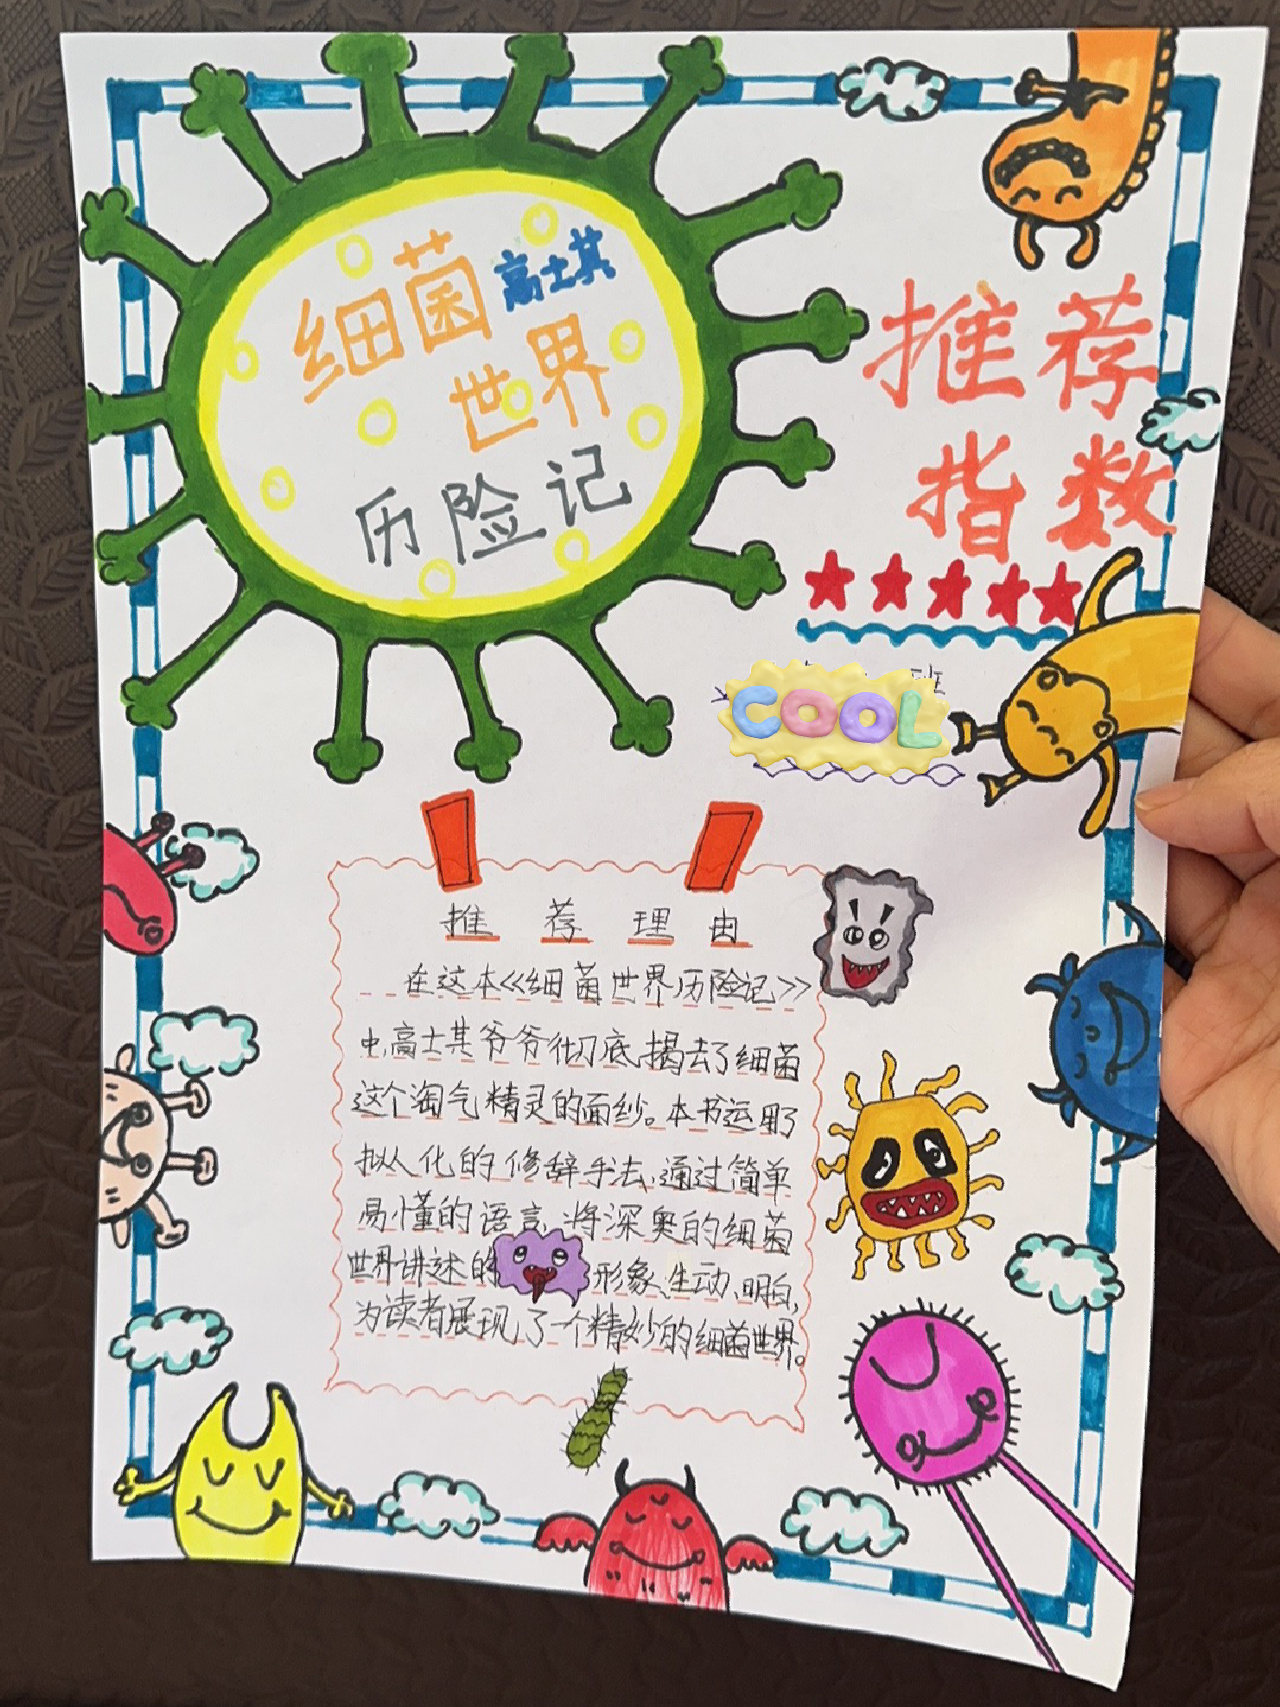 细菌
高士其
世界
历险记
推荐
指数
班
COOL
推荐理由
在这本<<细菌世界历险记>>
中,高士其爷爷彻底揭去了细菌
这个淘气精灵的面纱。本书运用了
拟人化的修辞手法,通过简单
易懂的语言,将深奥的细菌
世界讲述的形象、生动、明白,
为读者展现了一个精妙的细菌世界。